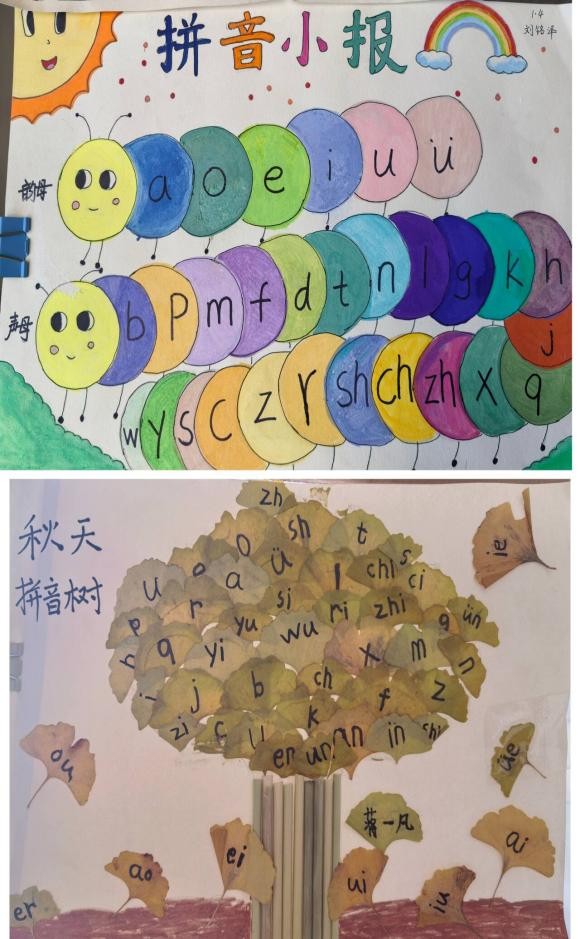 拼音小报
1.4
刘铭泽
韵母
a o e i u ü
声母
b p m f d t n l g k h
j
w y s c z r sh ch zh x q
秋天
拼音树
zh
o sh t
ie
u a ü l chi s
ci
r si ri zhi
p yu wu q ün
h q yi x m n
i j b ch f z
zi c u k in shi
er un
ou
üe
蒋一凡
ao ei ui iu ai
er